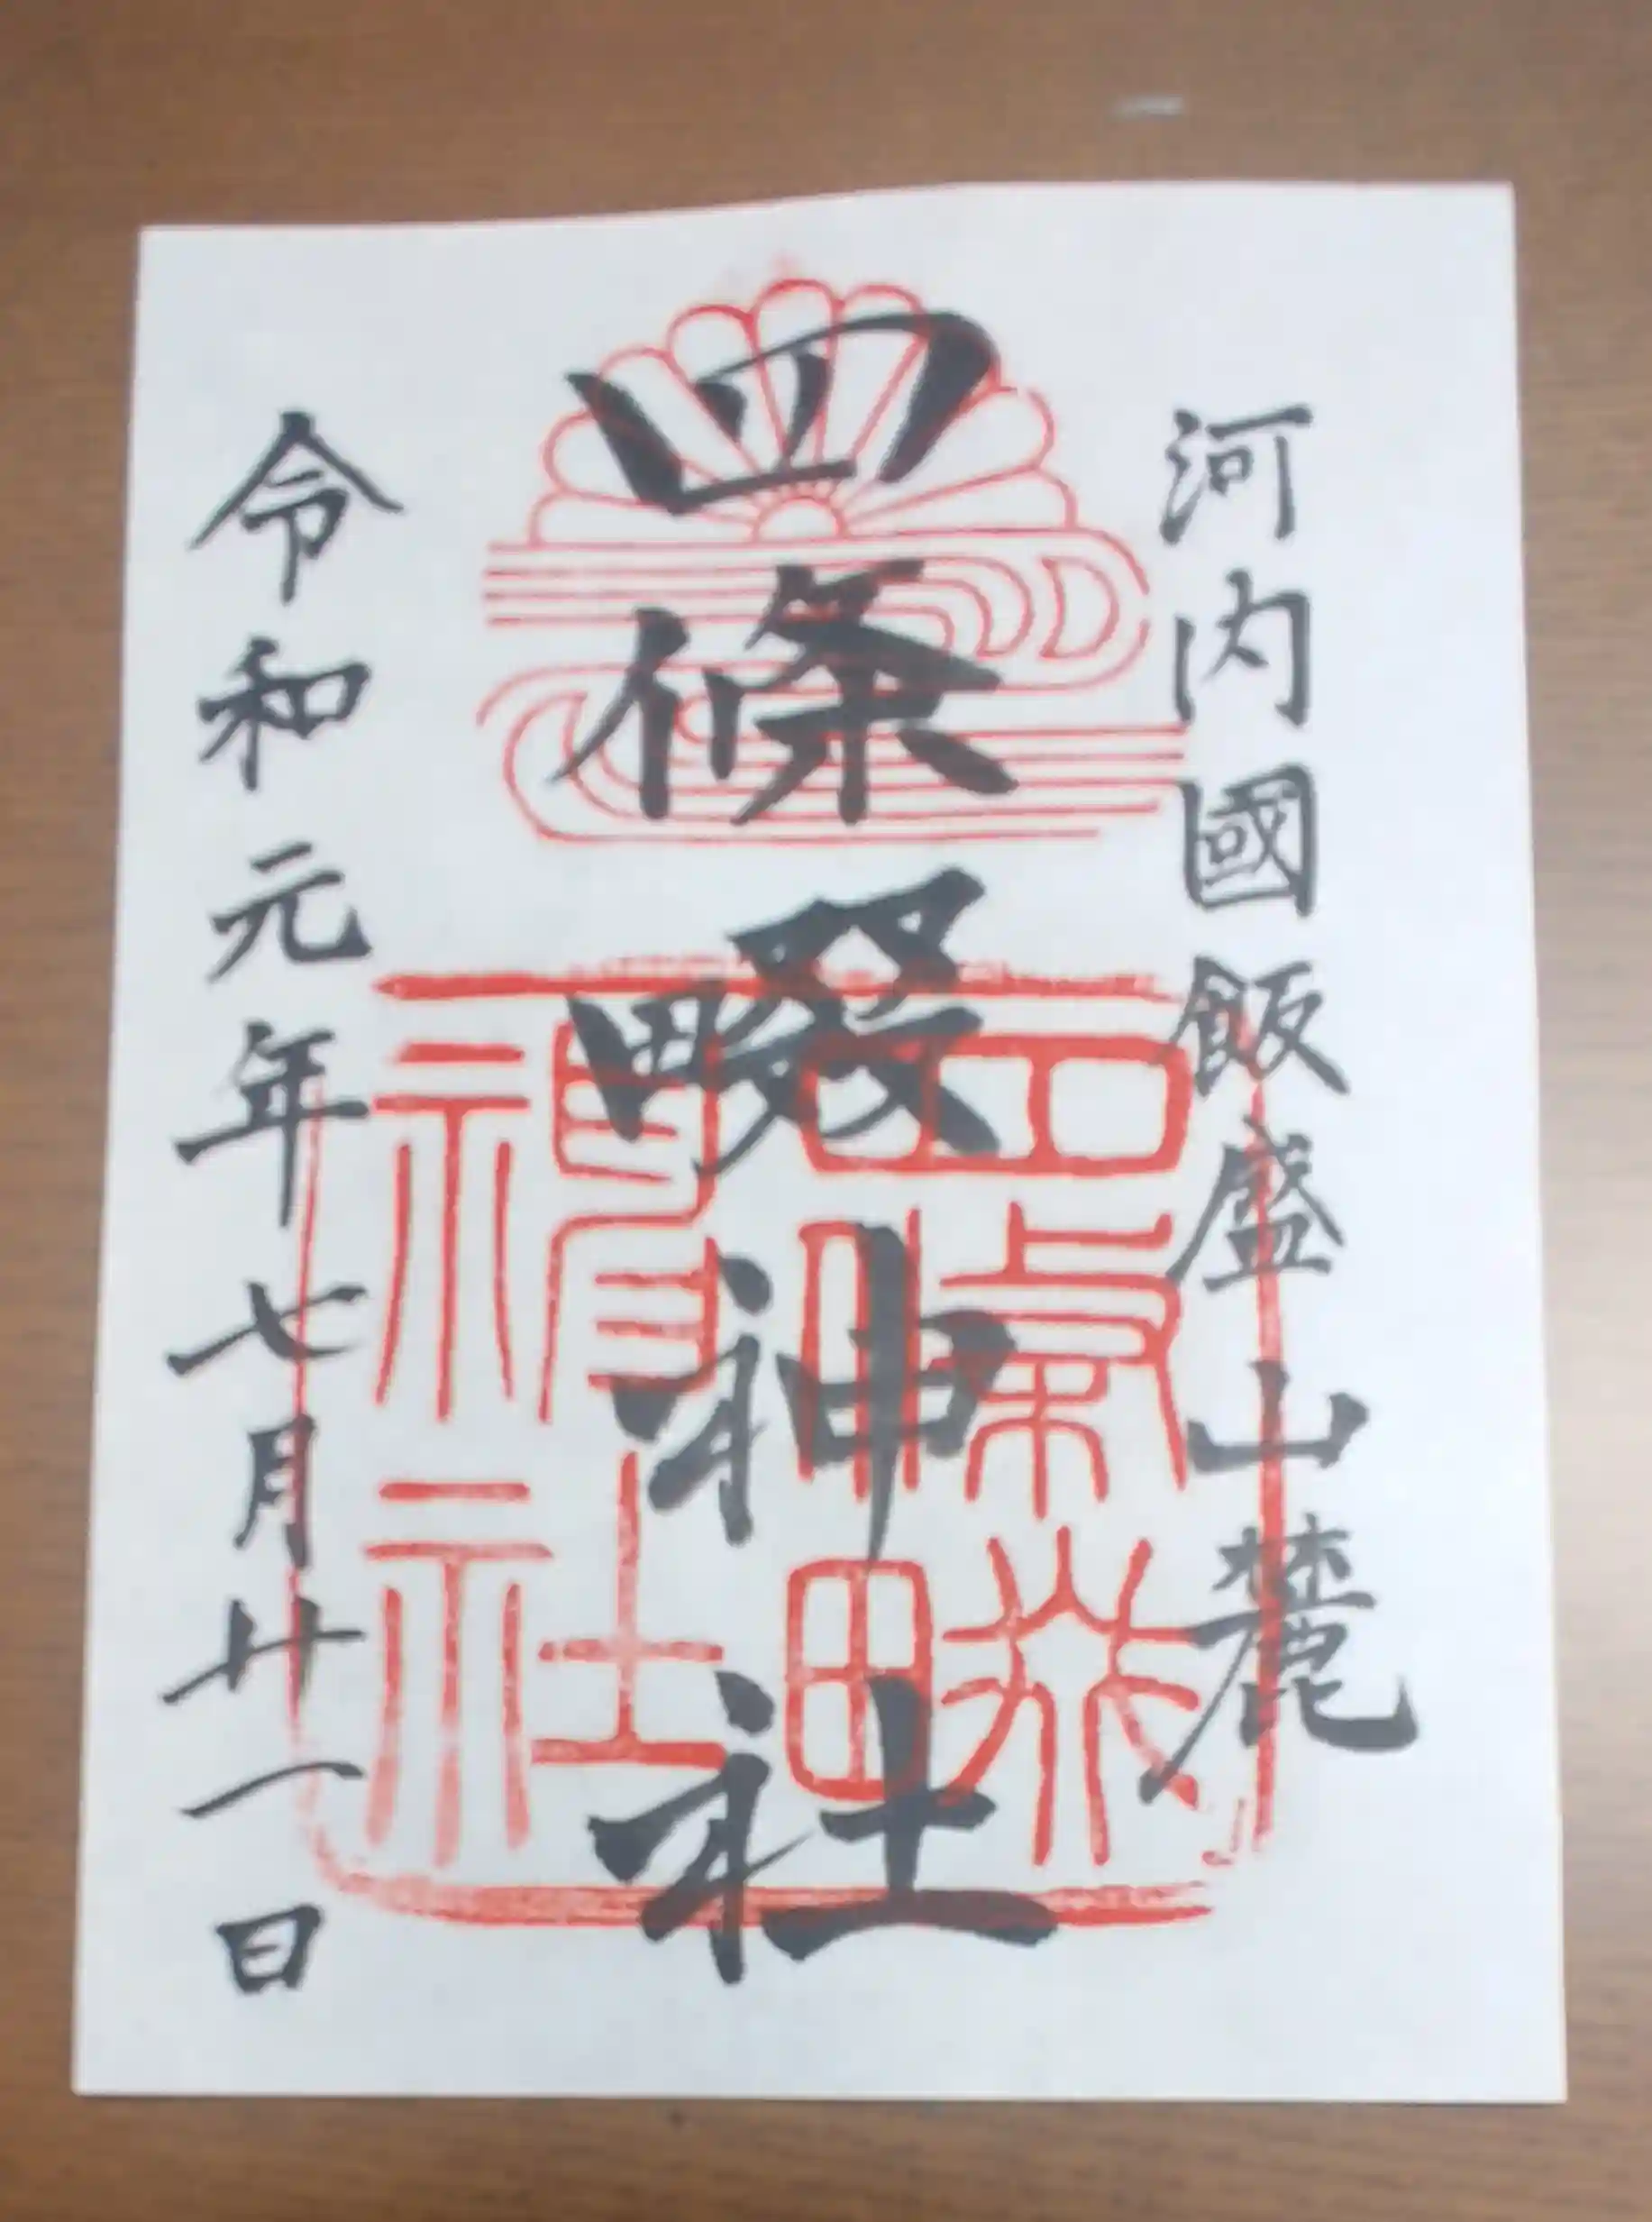 河内國飯盛山麓
四條畷神社
四條畷神社
令和元年七月廿一日